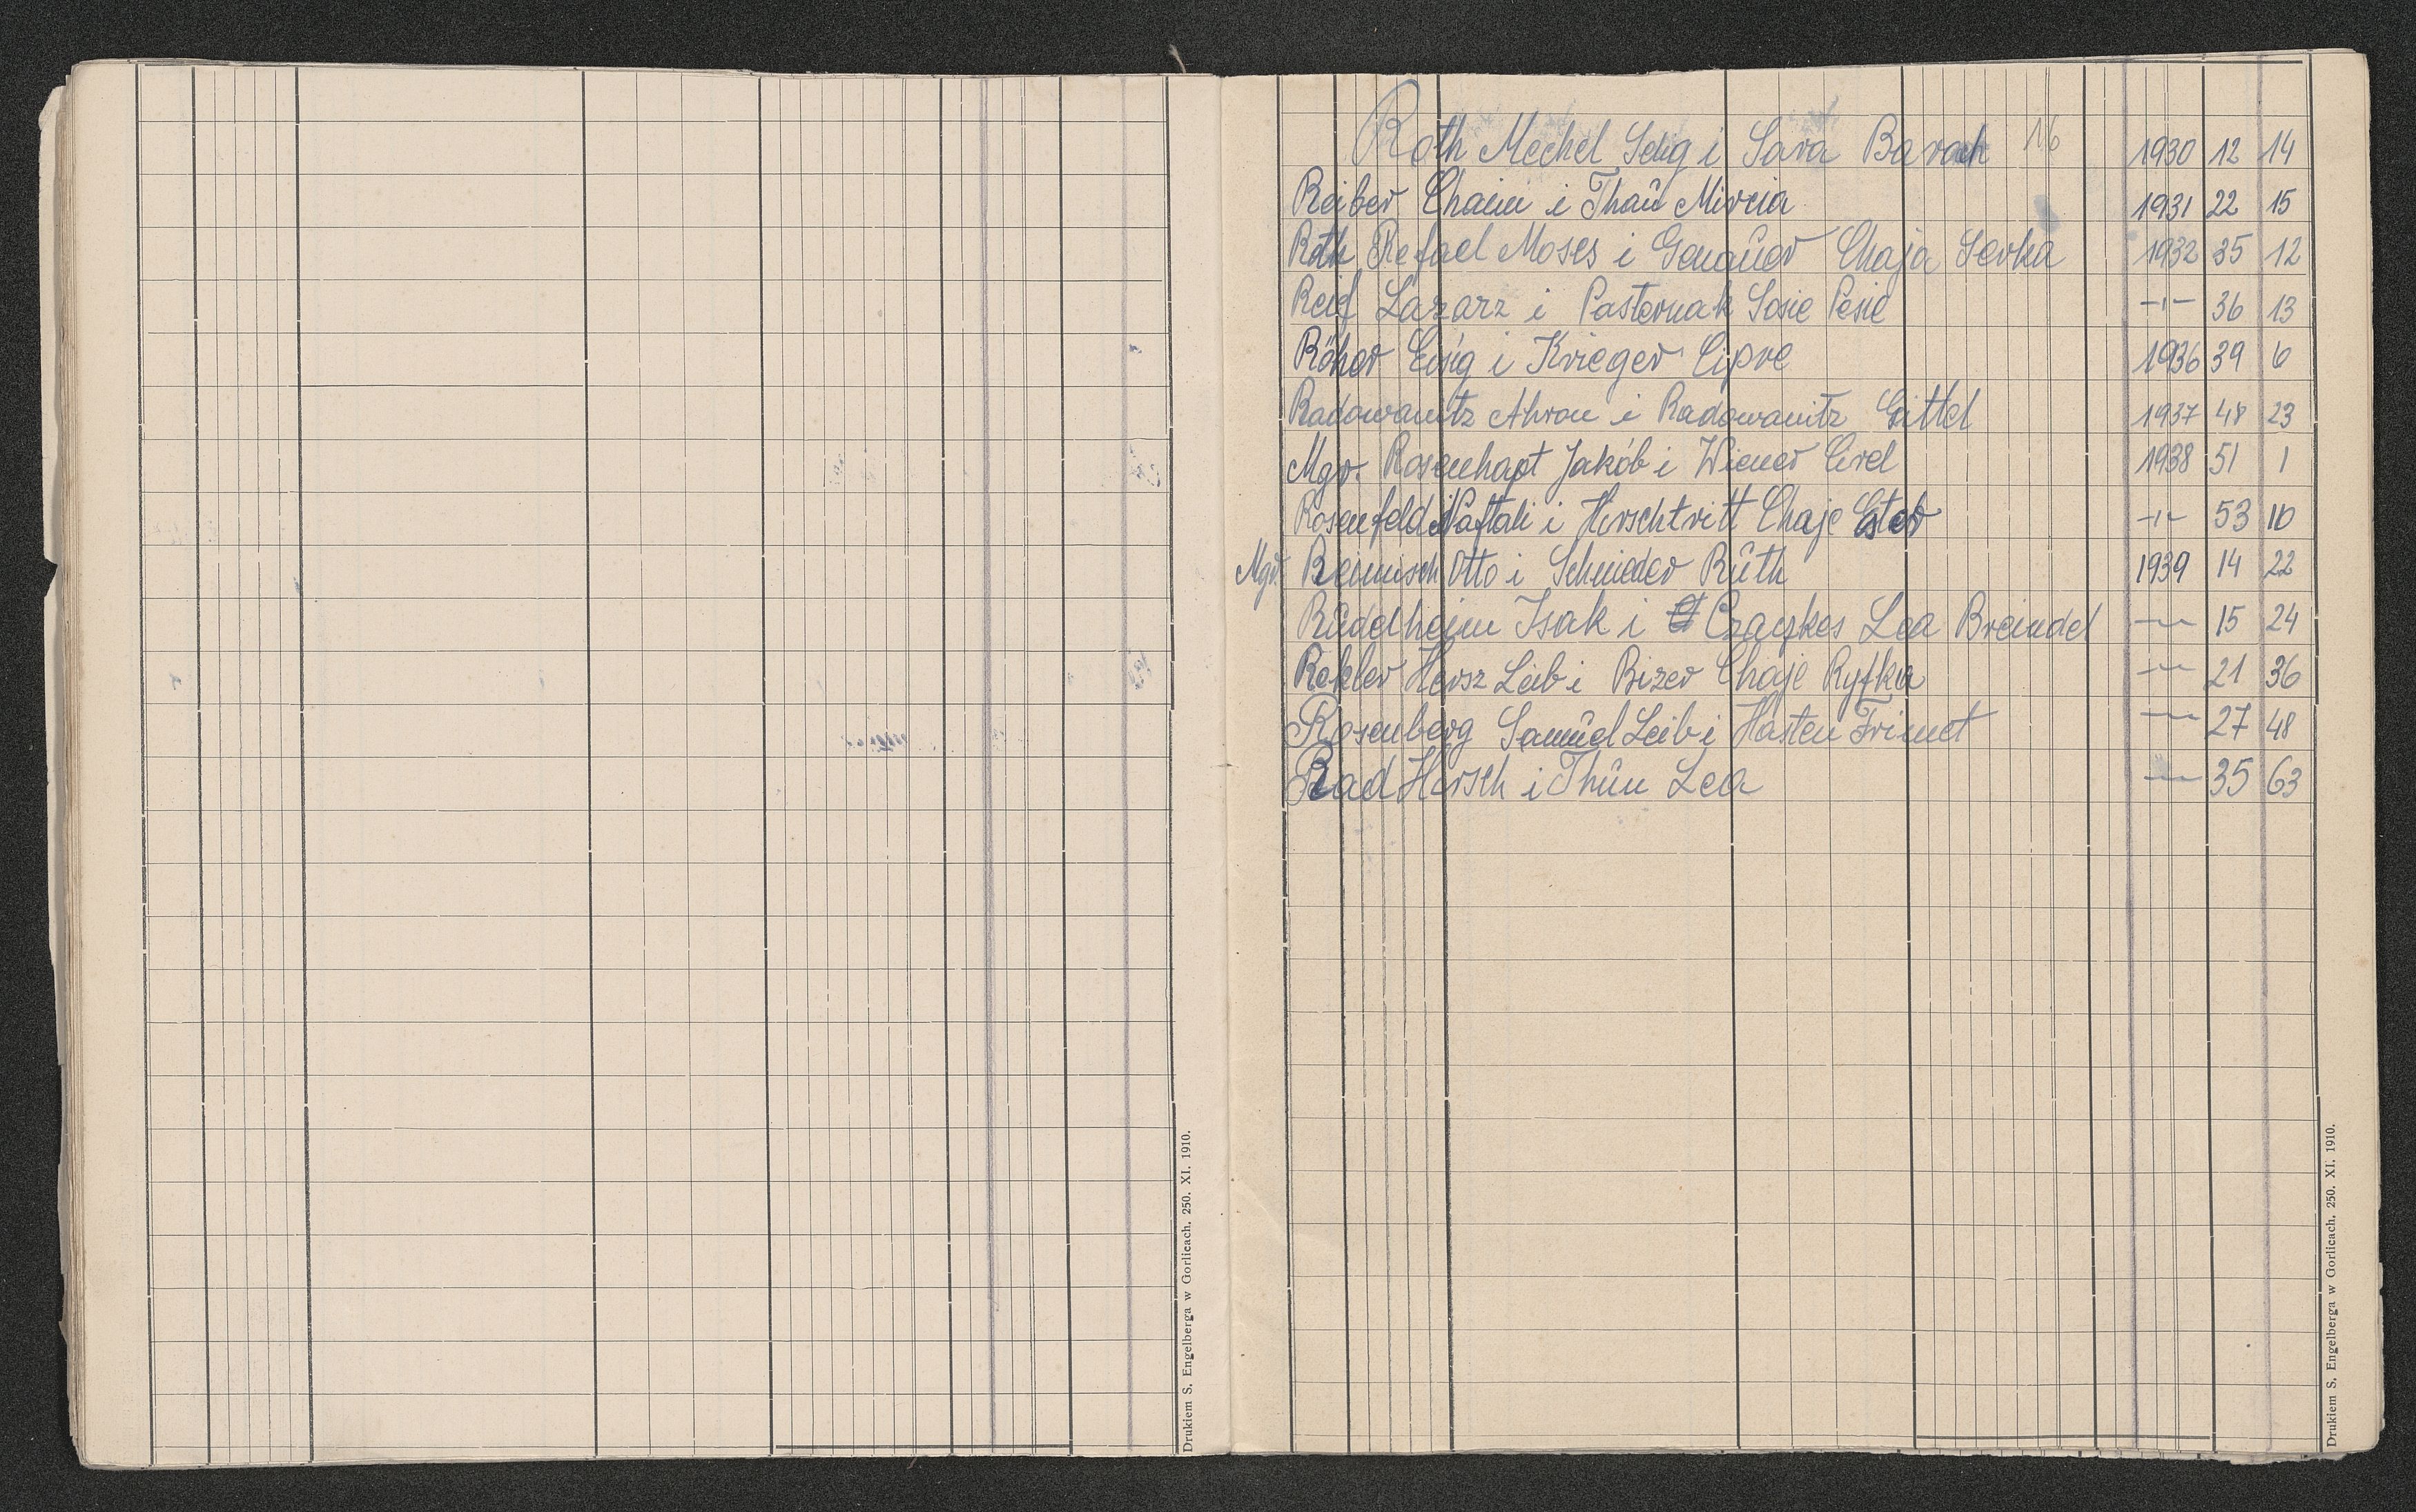 Drukiem S. Engelberga w Gorlicach. 250. XI. 1910.
16
Roth Mechel Selig i Sara Barach 1930 12 14
Reiber Chaim i Thaū Mircia 1931 22 15
Roth Refael Moses i Genaūer Chaja Serka 1932 35 12
Reif Lazarz i Pasternak Sosie Pesie -"- 36 13
Röher Eisig i Krieger Cipre 1936 39 6
Radowanitz Ahron i Radowanitz Gittel 1937 48 23
Mgr. Rosenhapt Jakób i Wiener Cirel 1938 51 1
Rosenfeld Naftali i Hirschtritt Chaje Ester -"- 53 10
Mgr. Reimisch Otto i Schnieder Rūth 1939 14 22
Rūdelheim Isak i Czaczkes Lea Breindel -"- 15 24
Rekler Hersz Leib i Bizer Chaje Ryfka -"- 21 36
Rosenberg Samūel Leib i Hasten Frimet -"- 27 48
Rad Hirsch i Thūn Lea -"- 35 63
Drukiem S. Engelberga w Gorlicach. 250. XI. 1910.